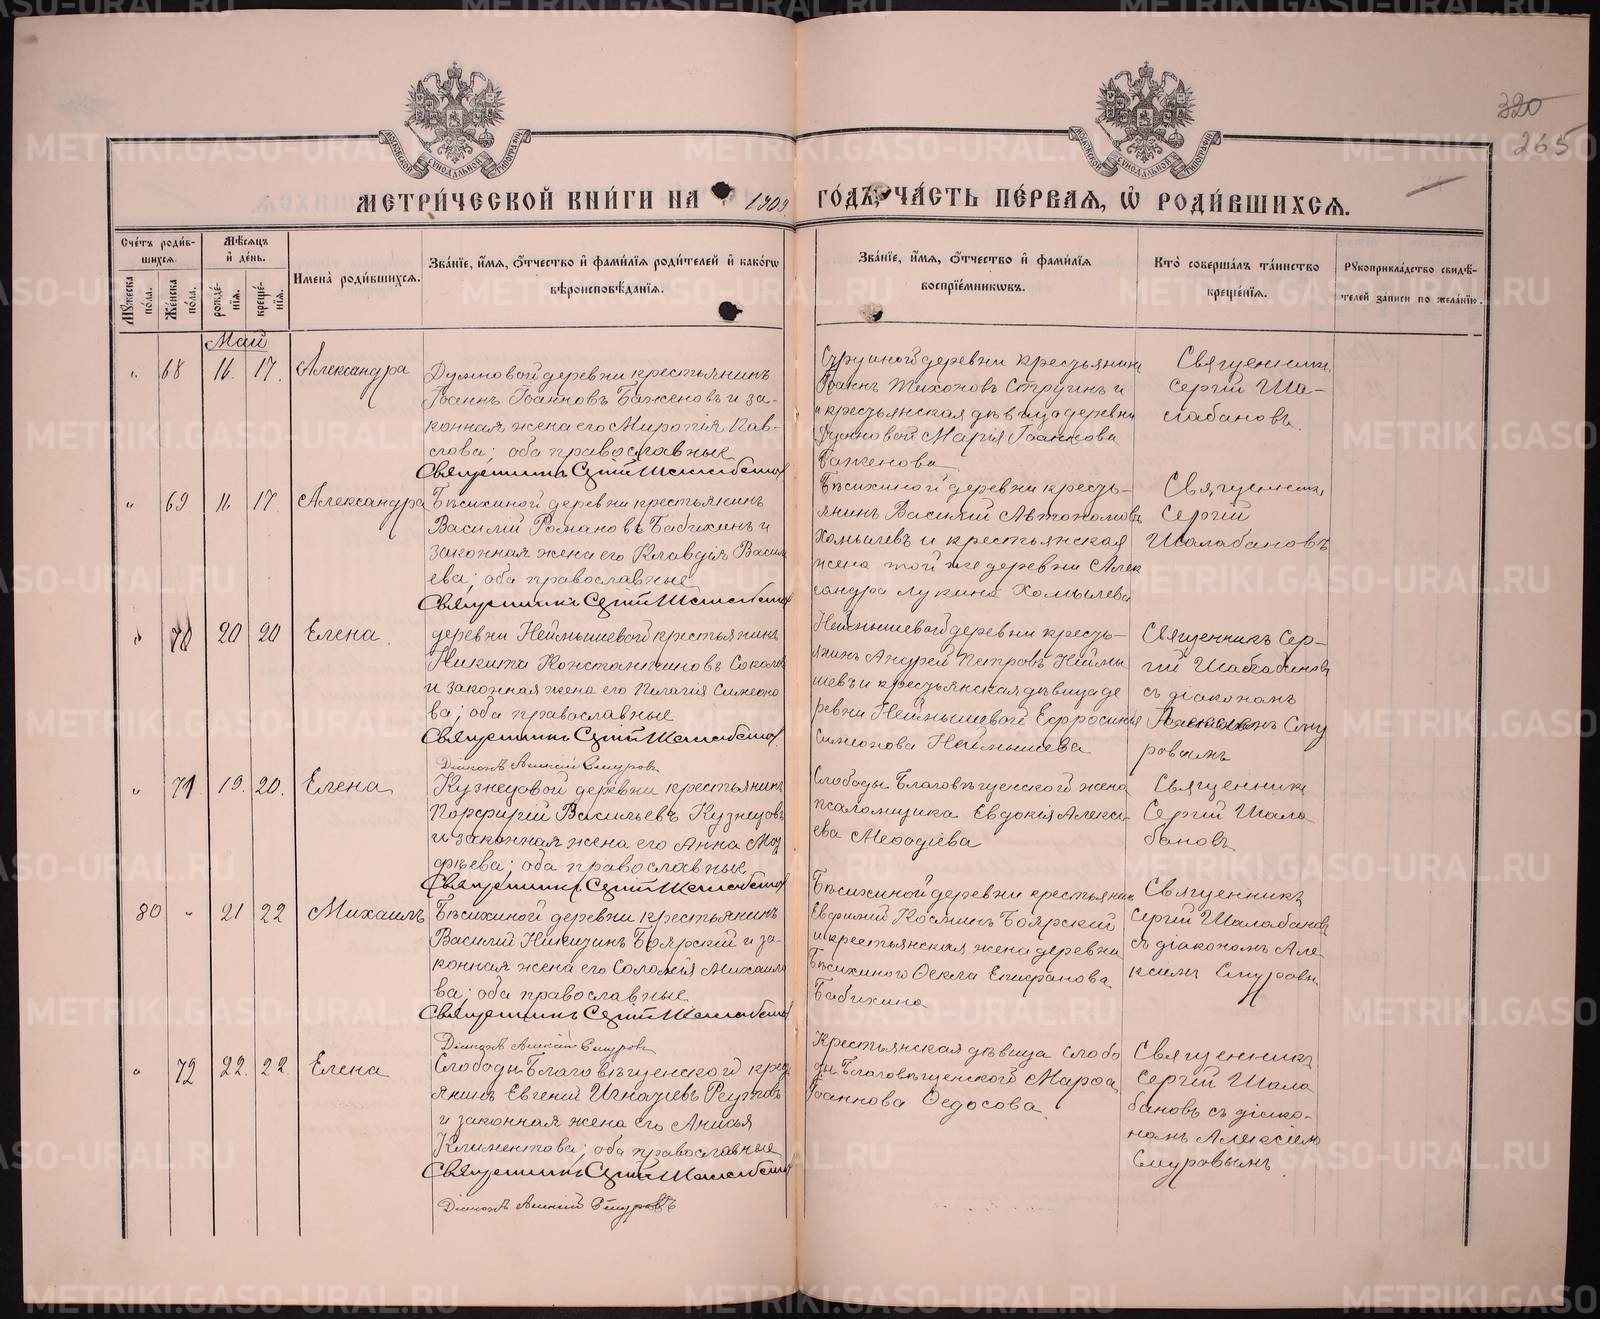 320
265
МОСКОВСКОЙ СУНОДАЛЬНОЙ ТИПОГРАФІИ
МОСКОВСКОЙ СУНОДАЛЬНОЙ ТИПОГРАФІИ
МЕТРИ́ЧЕСКОЙ КНИ́ГИ НА 1909
ГО́ДЪ, ЧА́СТЬ ПЕ́РВАЯ, Ѡ РОДИ́ВШИХСЯ.
Сче́тъ роди́вшихся.
Му́жеска по́ла.
Же́нска по́ла.
Мѣ́сяцъ и де́нь.
рожде́нїя.
креще́нїя.
Имена̀ роди́вшихся.
Зва́нїе, и҆́мя, ѻ҆́тчество и҆ фами́лїя роди́телей и҆ како́гѡ вѣроисповѣ́данїя.
Зва́нїе, и҆́мя, ѻ҆́тчество и҆ фами́лїя воспрїе́мникѡвъ.
Кто̀ соверша́лъ та́инство креще́нїя.
Рукоприкла́дство свидѣ́телей за́писи по жела́нїю.
Май
" 68 16. 17. Александра
Думновой деревни крестьянинъ
Іоаннъ Іоанновъ Баженовъ и за-
конная жена его Миропія Пав-
лова; оба православные
Священникъ Сергій Шалабановъ
Струиной деревни крестьянинъ
Іоаннъ Тихоновъ Струинъ и
крестьянская дѣвица деревни
Думновой Марія Іоаннова
Баженова
Священникъ
Сергій Ша-
лабановъ.
" 69 11. 17. Александра
Бѣсихиной деревни крестьянинъ
Василій Романовъ Бабихинъ и
законная жена его Клавдія Василь
ева; оба православные
Священникъ Сергій Шалабановъ
Бѣсихиной деревни кресть-
янинъ Василій Автономовъ
Хомылевъ и крестьянская
жена той же деревни Алек
сандра Лукина Хомылева
Священникъ
Сергій
Шалабановъ
" 70 20 20 Елена
деревни Неймышевой крестьянинъ
Никита Константиновъ Соколов
и законная жена его Пелагія Симеоно
ва; оба православные
Священникъ Сергій Шалабановъ
Діаконъ Алексій Смуровъ
Неймышевой деревни кресть-
янинъ Андрей Петровъ Неймы
шевъ и крестьянская дѣвица де
ревни Неймышевой Ефросинія
Симеонова Неймышева
Священникъ Сер-
гій Шалабановъ
съ діакономъ
Алексіемъ Сму
ровымъ
" 71 19. 20. Елена
Кузнецовой деревни крестьянинъ
Порфирій Васильевъ Кузнецовъ
и законная жена его Анна Мат
фѣева; оба православные
Священникъ Сергій Шалабановъ
Слободы Благовѣщенской жена
псаломщика Евдокія Алексі-
ева Меѳодіева
Священникъ
Сергій Шала
бановъ
80 " 21 22 Михаилъ
Бѣсихиной деревни крестьянинъ
Василій Никитинъ Боярскій и за-
конная жена его Соломія Михаило
ва; оба православные
Священникъ Сергій Шалабановъ
Діаконъ Алексій Смуровъ
Бѣсихиной деревни крестьянинъ
Евфимій Косминъ Боярскій
и крестьянская жена деревни
Бѣсихиного Ѳекла Епифанова
Бабихина
Священникъ
Сергій Шалабановъ
съ діакономъ Але-
ксіемъ Смуровы
" 72 22. 22. Елена
Слободы Благовѣщенской крест
янинъ Евгеній Игнатіевъ Реутовъ
и законная жена его Анисья
Климентова; оба православные
Священникъ Сергій Шалабановъ
Діаконъ Алексій Смуровъ
Крестьянская дѣвица слобо
ды Благовѣщенской Марѳа
Іоаннова Ѳедосова
Священникъ
Сергій Шала
бановъ съ діако-
номъ Алексіемъ
Смуровымъ